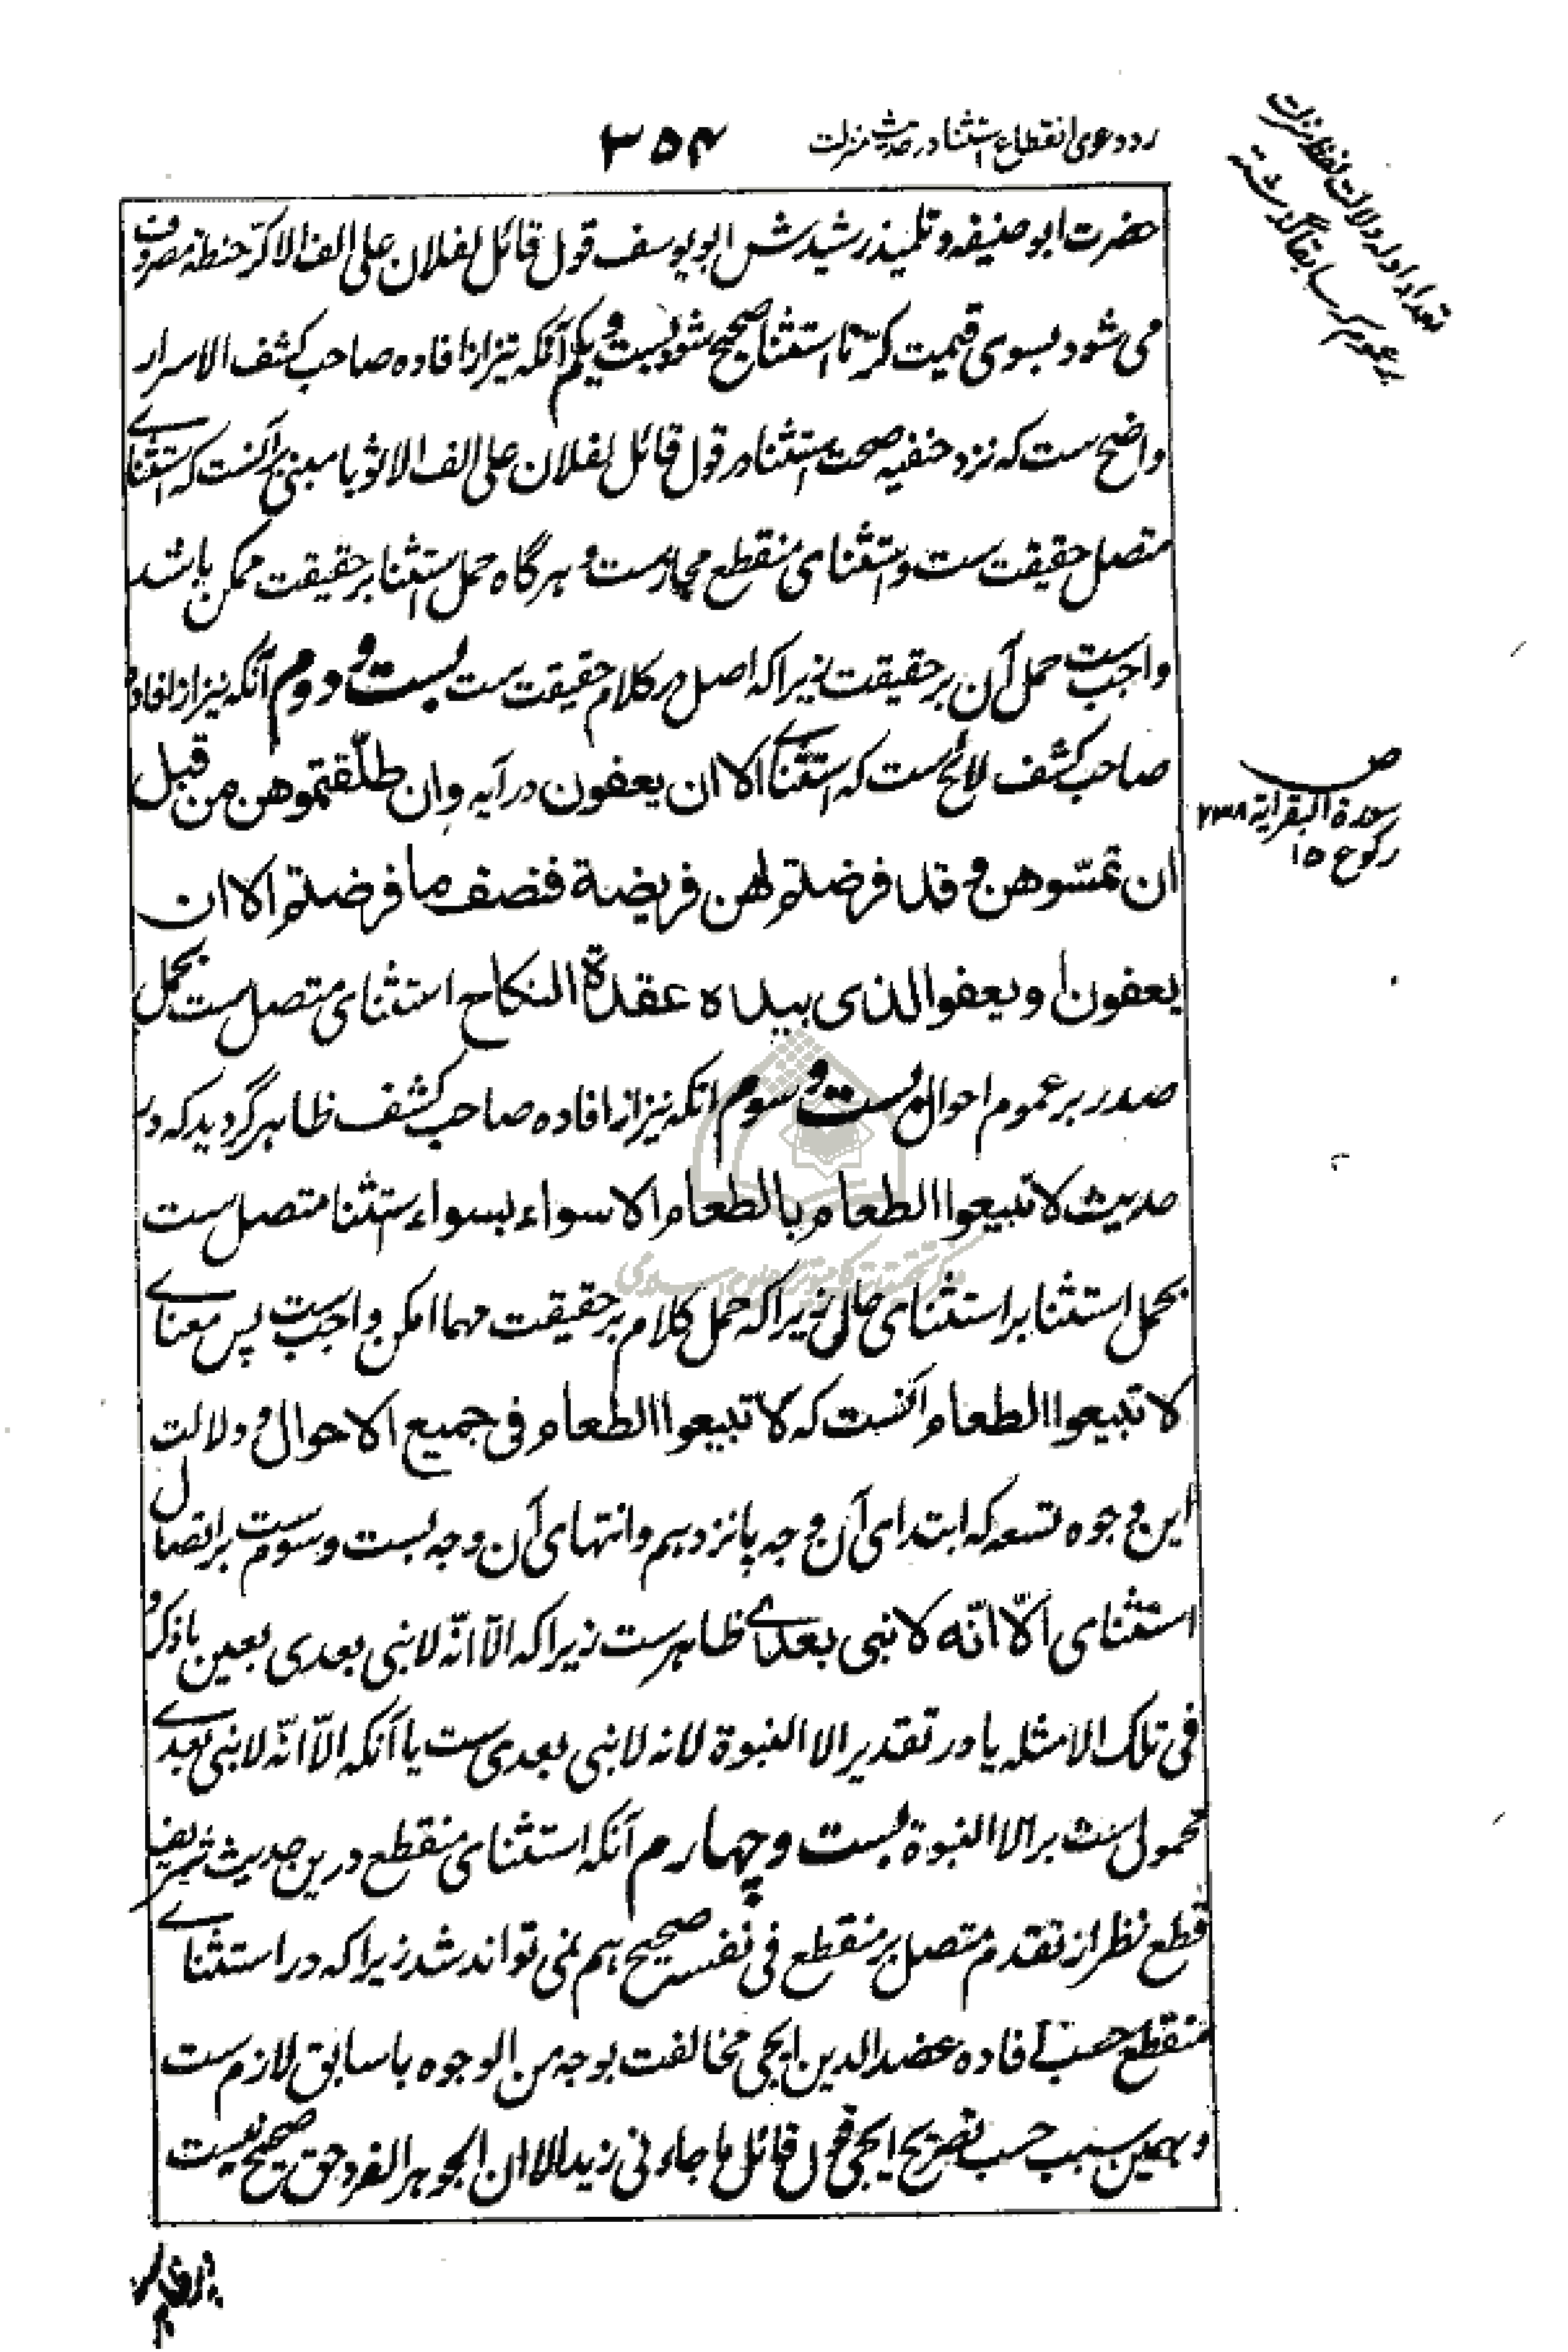 رد دعوی انقطاع استثنا در حدیث منزلت
۳۵۴
تعداد ادله دلالت لفظ منزلت
بر عموم که سابقا گذشته
حضرت ابوحنیفه و تلمیذ رشیدش ابویوسف قول قائل لفلان علی الف الا کرّ حنطة مصروف
می شود بسوی قیمت کرّ تا استثنا صحیح شود بست و یکم آنکه نیز از افاده صاحب کشف الاسرار
واضح ست که نزد حنفیه صحت استثنا در قول قائل لفلان علی الف الا ثوبا مبنی بر آنست که استثنای
متصل حقیقت ست و استثنای منقطع مجازست و هرگاه حمل استثنا بر حقیقت ممکن باشد
واجب ست حمل آن بر حقیقت زیرا که اصل در کلام حقیقت ست بست و دوم آنکه نیز از افاده
صاحب کشف لائح ست که استثنای الا ان یعفون در آیه و ان طلّقتموهن من قبل
ان تمسّوهن و قد فرضتم لهن فریضة فنصف ما فرضتم الا ان
یعفون او یعفو الذی بیده عقدة النکاح استثنای متصل ست بحمل
صدر بر عموم احوال بست و سوم آنکه نیز از افاده صاحب کشف ظاهر گردید که در
حدیث لا تبیعوا الطعام بالطعام الا سواء بسواء استثنا متصل ست
بحمل استثنا بر استثنای حالی زیرا که حمل کلام بر حقیقت مهما امکن واجب ست پس معنای
لا تبیعوا الطعام آنست که لا تبیعوا الطعام فی جمیع الاحوال و دلالت
این وجوه تسعه که ابتدای آن وجه پانزدهم و انتهای آن وجه بست و سوم ست بر اتصال
استثنای الّا انّه لا نبی بعدی ظاهرست زیرا که الّا انّه لا نبی بعدی بعین ما ذکر
فی تلک الامثله یا در تقدیر الا النبوة لانه لا نبی بعدی ست یا آنکه الّا انّه لا نبی بعدی
محمول ست بر الا النبوة بست و چهارم آنکه استثنای منقطع درین حدیث شریف
قطع نظر از تقدم متصل بر منقطع فی نفسه صحیح هم نمی تواند شد زیرا که در استثنای
منقطع حسب افاده عضد الدین ایجی مخالفت بوجه من الوجوه با سابق لازم ست
و بهمین سبب حسب تصریح ایجی قول قائل ما جاءنی زید الا ان الجوهر الفرد حق صحیح نیست
ص
سورة البقرایة ۲۳۸
رکوع ۱۵